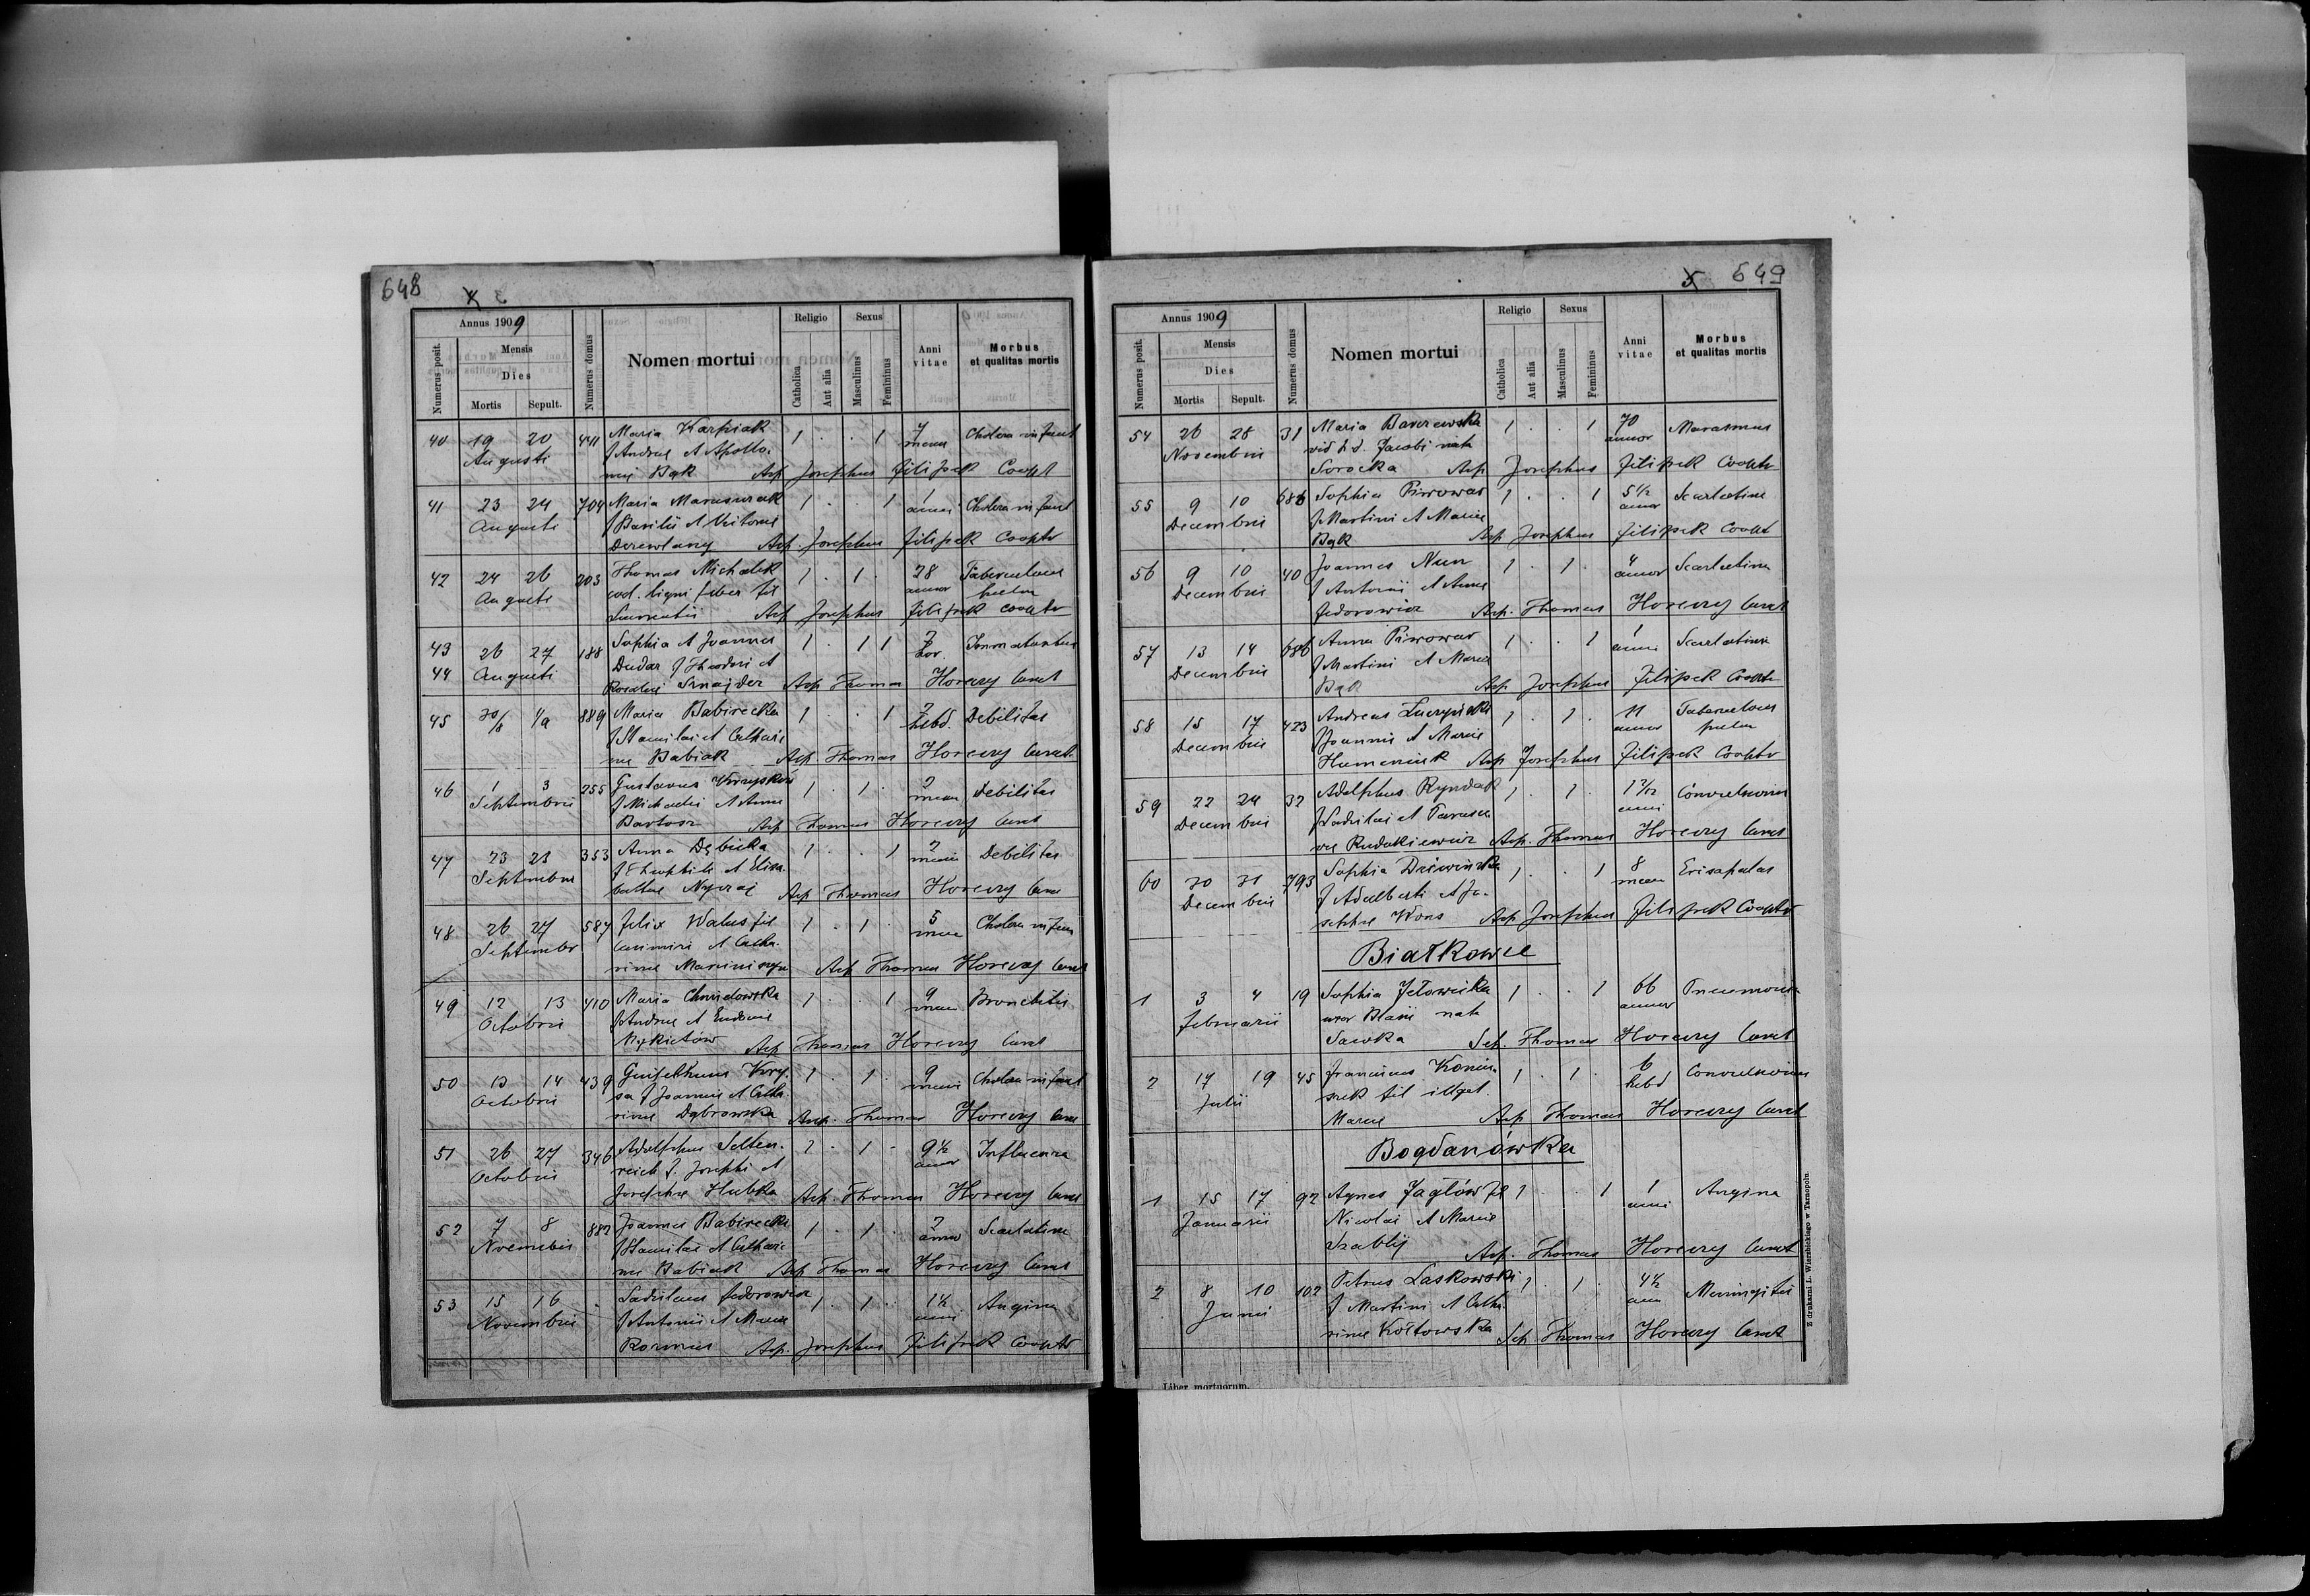 648
Annus 1909
Numerus posit.
Mensis
Dies
Mortis Sepult.
Numerus domus
Nomen mortui
Religio
Catholica
Aut alia
Sexus
Masculinus
Femininus
Anni vitae
Morbus et qualitas mortis
40 19 20 441 Maria Karpiak 1 . . 1 7 Cholera infant
Augusti f Andreae et Apollo-
niae Bąk Asp Josephus Filipek Coopt
41 23 24 704 Maria 1 . . 1 1 anni Cholera infant
Augusti f Basilii et
Derewlany Asp. Josephus Filipek Cooptr
42 24 26 203 Thomas Michalek 1 . 1 . 28 annor
Augusti fil
Laurentii Asp Josephus Filipek Cooptr
43 26 27 188 Sophia et Joannes 1 . 1 1 2 hor.
44 Augusti Dudar f Theodori et
Rosaliae Sznajder Asp Thomas Horeczy Curat
45 30/8 1/9 889 Maria Babirecka 1 . . 1 2 hebd. Debilitas
f Stanislai et Cathari
nae Babiak Asp. Thomas Horeczy Curat
46 1 3 255 Gustavus 1 . 1 . 2 Debilitas
Septembris f Michaelis et Annae
Bartosz Asp Thomas Horeczy Curat
47 23 25 353 Anna Dębicka 1 . . 1 2 Debilitas
Septembris f Theophili et Elisa-
bethae Asp Thomas Horeczy Curat
48 26 27 587 Felix Walus fil 1 . 1 . 5 Cholera infan
Septembr Casimiri et Catha-
rinae Asp Thomas Horeczy Curat
49 12 13 410 Maria 1 . . 1 9 Bronchitis
Octobris f Andreae et
Mykietów Asp Thomas Horeczy Curat
50 13 14 439 1 . 1 . 9 Cholera infant
Octobris f Joannis et Catha-
rinae Dąbrowska Asp. Thomas Horeczy Curat
51 26 27 346 Adolphus Selten- 1 . 1 . 9½ annor Influenza
Octobris reich f. Josephi et
Josephae Hubka Asp. Thomas Horeczy Curat
52 7 8 887 Joannes Babirecki 1 . 1 . 2 annor Scarlatina
f Stanislai et Cathari
nae Babiak Asp Thomas Horeczy Curat
53 15 16 . Ladislaus Fedorowicz 1 . 1 . 1½ anni Angina
Novembris f Antonii et Mariae
Asp. Josephus Filipek Cooptr
649
Annus 1909
Numerus posit.
Mensis
Dies
Mortis Sepult.
Numerus domus
Nomen mortui
Religio
Catholica
Aut alia
Sexus
Masculinus
Femininus
Anni vitae
Morbus et qualitas mortis
54 26 28 31 Maria 1 . . 1 70 annor Marasmus
Novembris Jacobi nata
Sorocka Asp Josephus Filipek Cooptr
55 9 10 686 Sophia Piwowar 1 . . 1 5½ annor Scarlatina
Decembris f Martini et Mariae
Bąk Asp Josephus Filipek Cooptr
56 9 10 40 Joannes 1 . 1 . 4 annor Scarlatina
Decembris f Antonii et Annae
Fedorowicz Asp. Thomas Horeczy Curat
57 13 14 686 Anna Piwowar 1 . . 1 1 anni Scarlatina
Decembris f Martini et Mariae
Bąk Asp Josephus Filipek Cooptr
58 15 17 423 Andreas 1 . 1 . 11 annor
Decembris f Joannis et Mariae
Humeniuk Asp Josephus Filipek Cooptr
59 22 24 32 Adolphus Ryndak 1 . 1 . anni Convulsiones
Decembris f Ladislai et
Rudakiewicz Asp. Thomas Horeczy Curat
60 30 31 793 Sophia Dziwińska 1 . . 1 8
Decembris f Adalberti et Jo-
sephae Asp Josephus Filipek Cooptr
Białkowce
1 3 4 19 Sophia Jełowicka 1 . . 1 66 annor Pneumonia
Februarii uxor Blasii nata
Sawka Sep. Thomas Horeczy Curat
2 17 19 45 Franciscus 1 . 1 . 6 hebd Convulsiones
Julii fil illeget.
Mariae Asp Thomas Horeczy Curat
Bogdanówka
1 15 17 92 Agnes Jagłów fil 1 . . 1 1 anni Angina
Januarii Nicolai et Mariae
Asp. Thomas Horeczy Curat
2 8 10 102 Petrus Laskowski 1 . 1 . 4½ Meningitis
Junii f Martini et Catha-
rinae Kołtowska Sep. Thomas Horeczy Curat
Liber mortuorum.
Z drukarni L. Wierzbickiego w Tarnopolu.